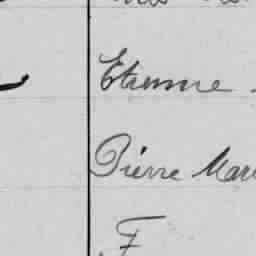 Etienne
Pierre Mar
F